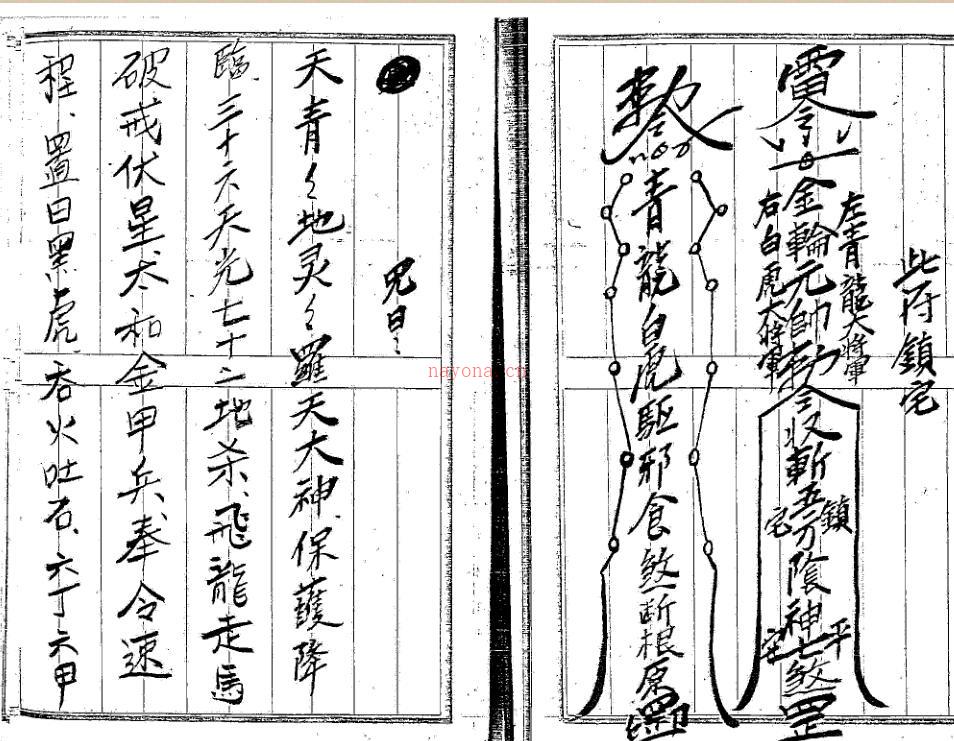 此符鎮宅
左青龍大將軍
雷令 金輪元帥勅令收斬五方陰神七煞罡
右白虎大將軍
鎮宅
平宅
勅令 青龍白虎駆邪食煞断根原罡印
咒曰:
天青々地灵々羅天大神、保護降
臨、三十六天光七十二地杀、飛龍走馬
破戒伏星太和金甲兵、奉令速
程、置曰黑虎、吞火吐石、六丁六甲
nayona.cn